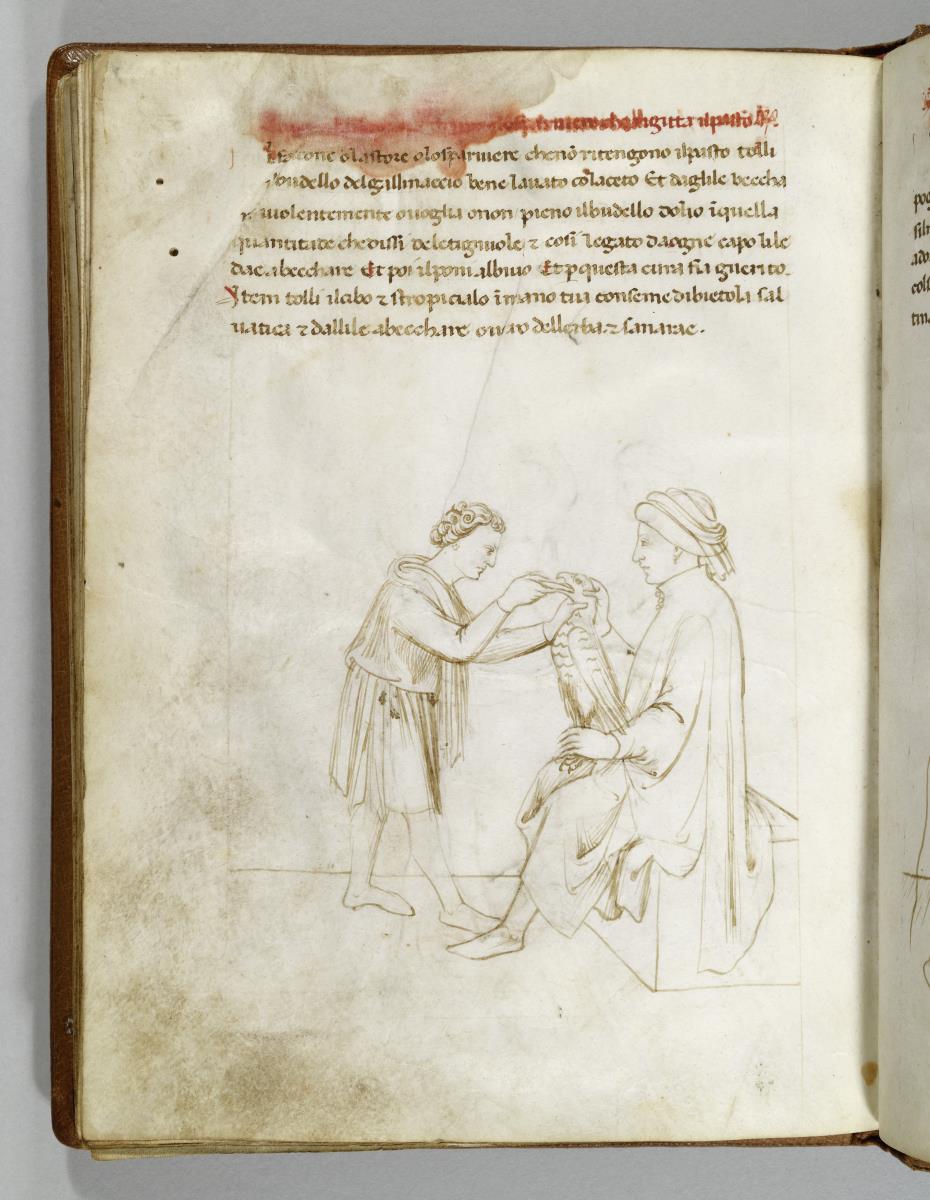 sparuiero che gitta il pasto
falcone o lastore o lo sparuiere che nō ritengono il pasto tolli
budello del gallinaccio bene lauato cō laceto Et daglile beccha
uiolentemente o uoglia o non pieno il budello dolio ī quella
quantitade che dissi de letigniuole ⁊ cosi legato da ogne capo lile
dae a becchare Et poi il poni al biuio Et p questa cura fia guerito.
Item tolli il cibo ⁊ stropicialo ī mano tua con seme di bietola sal
uatica ⁊ dallile a becchare ouero dell erba ⁊ sanarae.